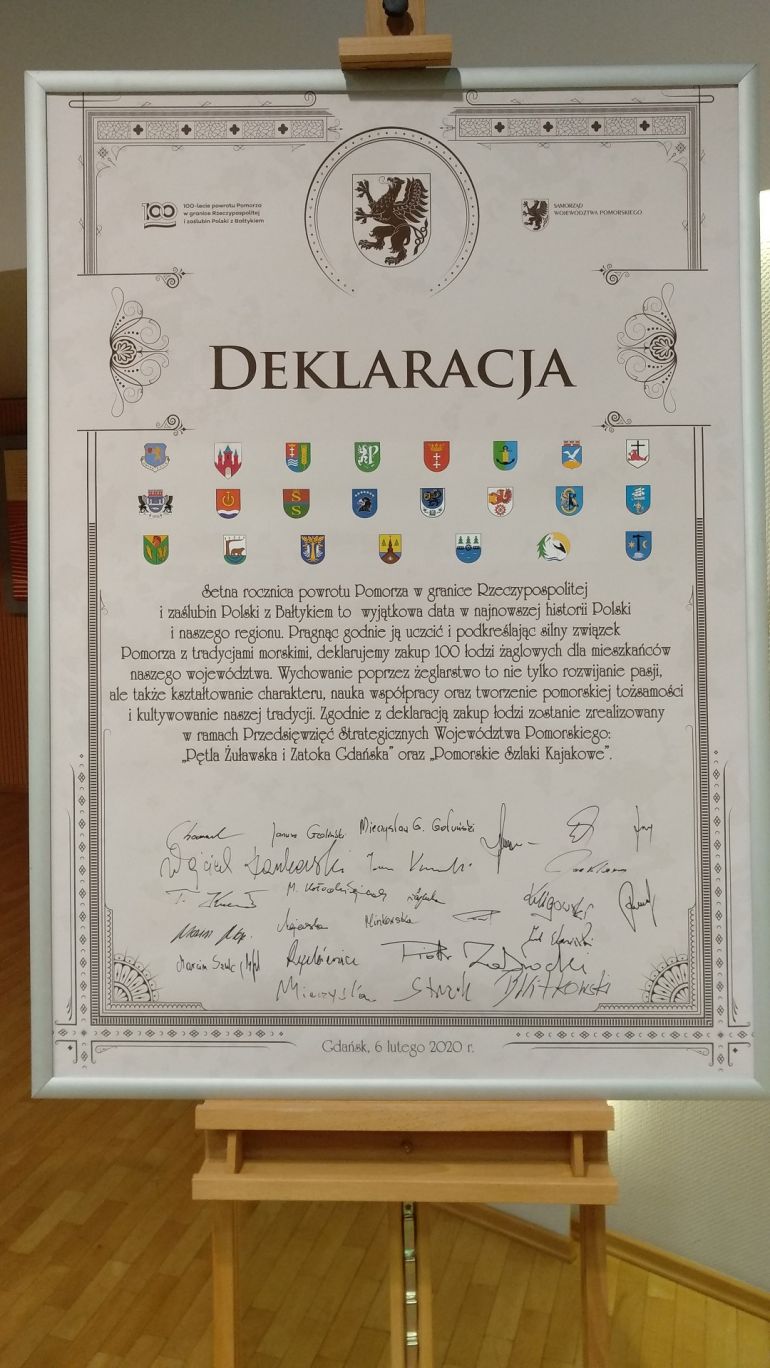 100-lecie powrotu Pomorza
w granice Rzeczypospolitej
i zaślubin Polski z Bałtykiem
SAMORZĄD
WOJEWÓDZTWA POMORSKIEGO
DEKLARACJA
Setna rocznica powrotu Pomorza w granice Rzeczypospolitej
i zaślubin Polski z Bałtykiem to wyjątkowa data w najnowszej historii Polski
i naszego regionu. Pragnąc godnie ją uczcić i podkreślając silny związek
Pomorza z tradycjami morskimi, deklarujemy zakup 100 łodzi żaglowych dla mieszkańców
naszego województwa. Wychowanie poprzez żeglarstwo to nie tylko rozwijanie pasji,
ale także kształtowanie charakteru, nauka współpracy oraz tworzenie pomorskiej tożsamości
i kultywowanie naszej tradycji. Zgodnie z deklaracją zakup łodzi zostanie zrealizowany
w ramach Przedsięwzięć Strategicznych Województwa Pomorskiego:
„Pętla Żuławska i Zatoka Gdańska” oraz „Pomorskie Szlaki Kajakowe”.
Mieczysław G. Gołuński
Wojciech Jankowski
Piotr Zabrocki
Mieczysław Struk B Witkowski
Gdańsk, 6 lutego 2020 r.